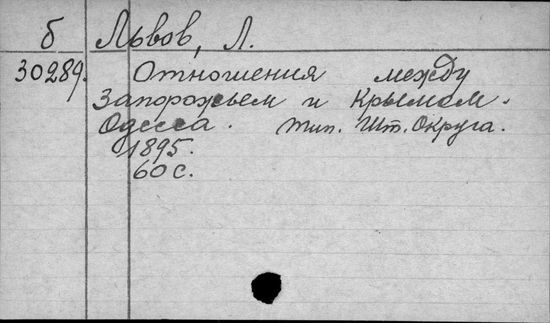 б Львов, Л.
30289. Отношения между
Запорожьем и Крымом.
Одесса. тип. Шт. Округа.
1895.
60 с.